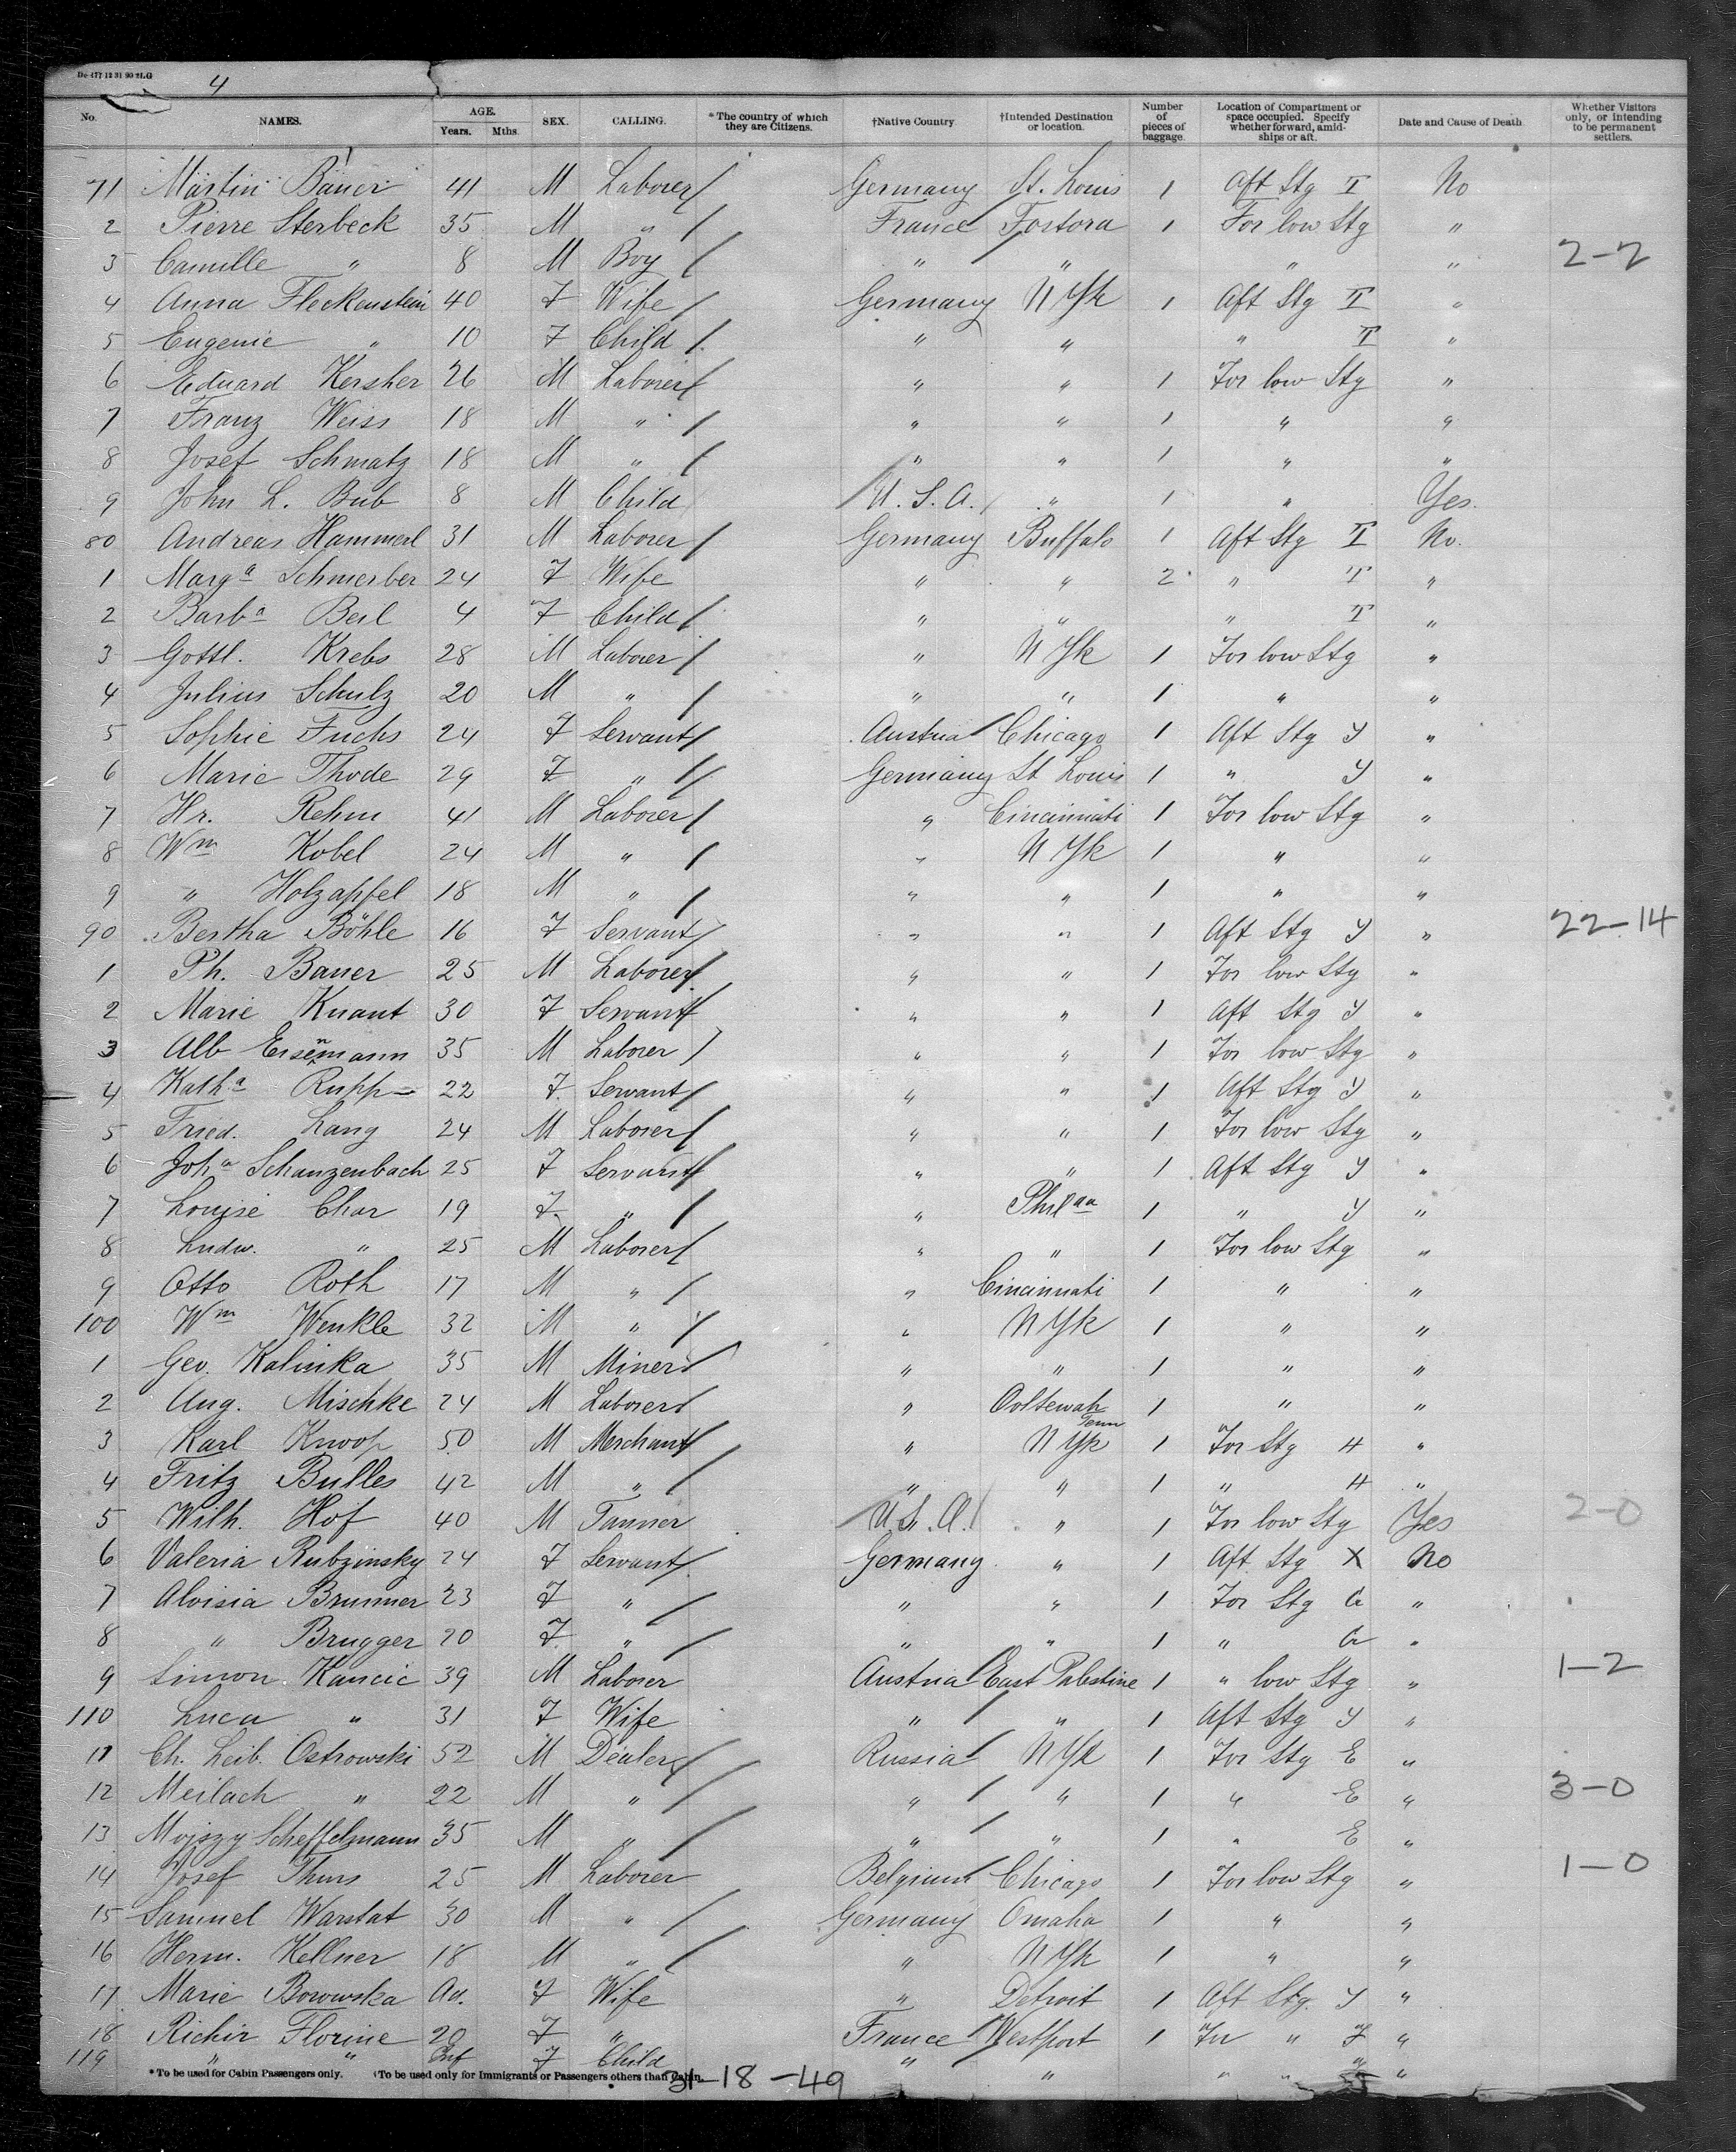 De 477 12 31 90 2LG
4
No. NAMES. AGE. Years. Mths. SEX. CALLING. * The country of which they are Citizens. †Native Country †Intended Destination or location. Number of pieces of baggage. Location of Compartment or space occupied. Specify whether forward, amidships or aft. Date and Cause of Death Whether Visitors only, or intending to be permanent settlers.
71 Martin Bauer 41 M Laborer Germany St. Louis 1 Aft Stg T No
2 Pierre Sterbeck 35 M " France Fostora 1 For low Stg "
3 Camille " 8 M Boy " " " " 2-2
4 Anna Fleckenstein 40 F Wife Germany N Yk 1 Aft Stg T "
5 Eugenie " 10 F Child " " " T "
6 Eduard Kersher 26 M Laborer " " 1 For low Stg "
7 Franz Weiss 18 M " " " 1 " "
8 Josef Schmatz 18 M " " " 1 " "
9 John L. Bub 8 M Child U. S. A. " 1 " Yes.
80 Andreas Hammerl 31 M Laborer Germany Buffalo 1 Aft Stg T No.
1 Marga Schmerber 24 F Wife " " 2 " T "
2 Barba Beil 4 F Child " " " T "
3 Gottl. Krebs 28 M Laborer " N Yk 1 For low Stg "
4 Julius Schulz 20 M " " " 1 " "
5 Sophie Fuchs 24 F Servant Austria Chicago 1 Aft Stg Y "
6 Marie Thode 29 F " Germany St Louis 1 " Y "
7 Hr. Rehm 41 M Laborer " Cincinnati 1 For low Stg "
8 Wm Kobel 24 M " " N Yk 1 " "
9 " Holzapfel 18 M " " " 1 " "
90 Bertha Böhle 16 F Servant " " 1 Aft Stg Y " 22-14
1 Ph. Bauer 25 M Laborer " " 1 For low Stg "
2 Marie Knant 30 F Servant " " 1 Aft Stg Y "
3 Alb Eisenmann 35 M Laborer " " 1 For low Stg "
4 Katha Rupp 22 F Servant " " 1 Aft Stg Y "
5 Fried. Lang 24 M Laborer " " 1 For low Stg "
6 Joha Schanzenbach 25 F Servant " " 1 Aft Stg Y "
7 Louise Char 19 F " " Philaa 1 " Y "
8 Ludw. " 25 M Laborer " " 1 For low Stg "
9 Otto Roth 17 M " " Cincinnati 1 " "
100 Wm Wenkle 32 M " " N Yk 1 " "
1 Geo. Kalinka 35 M Miner " " 1 " "
2 Aug. Mischke 24 M Laborer " Ooltewah Tenn 1 " "
3 Karl Knoop 50 M Merchant " N Yk 1 For Stg H "
4 Fritz Bulles 42 M " " " 1 " H "
5 Wilh. Hof 40 M Tanner U.S.A. " 1 For low Stg Yes 2-0
6 Valeria Rubzinsky 24 F Servant Germany " 1 Aft Stg X No
7 Aloisia Brunner 23 F " " " 1 For Stg G "
8 " Brugger 20 F " " " 1 " G "
9 Simon Kancic 39 M Laborer Austria East Palestine 1 " low Stg " 1-2
110 Luca " 31 F Wife " " 1 Aft Stg Y "
11 Ch. Leib. Ostrowski 52 M Dealer Russia N Yk 1 For Stg E "
12 Meilach " 22 M " " " 1 " E " 3-0
13 Mojszy Scheffelmann 35 M " " " 1 " E "
14 Josef Thurs 25 M Laborer Belgium Chicago 1 For low Stg " 1-0
15 Samuel Warstat 30 M " Germany Omaha 1 " "
16 Herm. Kellner 18 M " " N Yk 1 " "
17 Marie Borowska Ad. F Wife " Detroit 1 Aft Stg. Y "
18 Richir Florine 20 F " France Westport 1 For " F "
119 " " Inf F Child " " " " " "
* To be used for Cabin Passengers only. †To be used only for Immigrants or Passengers others than Cabin.
31-18-49